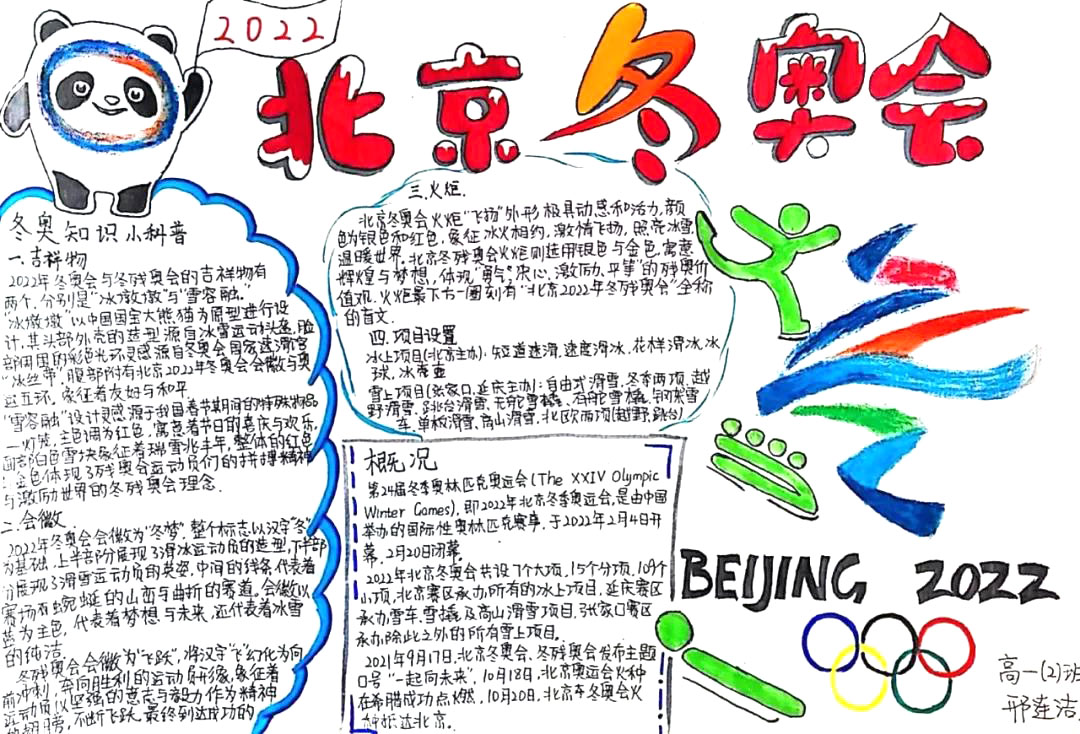 2022
北京冬奥会
冬奥知识小科普
一.吉祥物
2022年冬奥会与冬残奥会的吉祥物有
两个,分别是"冰墩墩"与"雪容融."
"冰墩墩"以中国国宝大熊猫为原型进行设
计,其头部外壳的造型源自冰雪运动头盔,脸
部周围的彩色光环灵感源自冬奥会国家速滑馆
"冰丝带",腹部附有北京2022年冬奥会会徽与奥
运五环.象征着友好与和平.
"雪容融"设计灵感源于我国春节期间的特殊物品
—灯笼,主色调为红色,寓意着节日的喜庆与欢乐.
面部白色雪块象征着瑞雪兆丰年,整体的红色
金色体现了残奥会运动员们的拼搏精神
与激励世界的冬残奥会理念.
二.会徽.
2022年冬奥会会徽为"冬梦".整个标志以汉字"冬"
为基础,上半部分展现了滑冰运动员的造型,下半部
分展现了滑雪运动员的英姿.中间的线条代表着
赛场有蜿蜒的山峦与曲折的赛道.会徽以
蓝为主色,代表着梦想与未来,还代表着冰雪
的纯洁.
冬残奥会会徽为"飞跃",将汉字"飞"幻化为向
前冲刺,奔向胜利的运动员形象,象征着
运动员以坚强的意志与毅力作为精神
的翅膀,不断飞跃.最终到达成功的
三.火炬.
北京冬奥会火炬"飞扬"外形极具动感和活力,颜
色为银色和红色,象征冰火相约,激情飞扬,照亮冰雪,
温暖世界.北京冬残奥会火炬则选用银色与金色,寓意
辉煌与梦想,体现"勇气,决心,激励,平等"的残奥价
值观.火炬最下方一圈刻有"北京2022年冬残奥会"全称
的盲文.
四.项目设置
冰上项目(北京主办):短道速滑,速度滑冰,花样滑冰,冰
球,冰壶壶
雪上项目(张家口,延庆主办):自由式滑雪,冬季两项,越
野滑雪,跳台滑雪,无舵雪橇,有舵雪橇,钢架雪
车,单板滑雪,高山滑雪,北欧两项(越野,跳台)
概况
第24届冬季奥林匹克奥运会(The XXIV Olympic
Winter Games),即2022年北京冬季奥运会,是由中国
举办的国际性奥林匹克赛事.于2022年2月4日开
幕,2月20日闭幕.
2022年北京冬奥会共设7个大项,15个分项,109个
小项,北京赛区承办所有的冰上项目,延庆赛区
承办雪车,雪橇及高山滑雪项目,张家口赛区
承办除此之外的所有雪上项目.
2021年9月17日,北京冬奥会、冬残奥会发布主题
口号"一起向未来",10月18日,北京奥运会火种
在希腊成功点燃,10月20日,北京车冬奥会火
种抵达北京.
BEIJING 2022
高一(2)班
邢连洁.